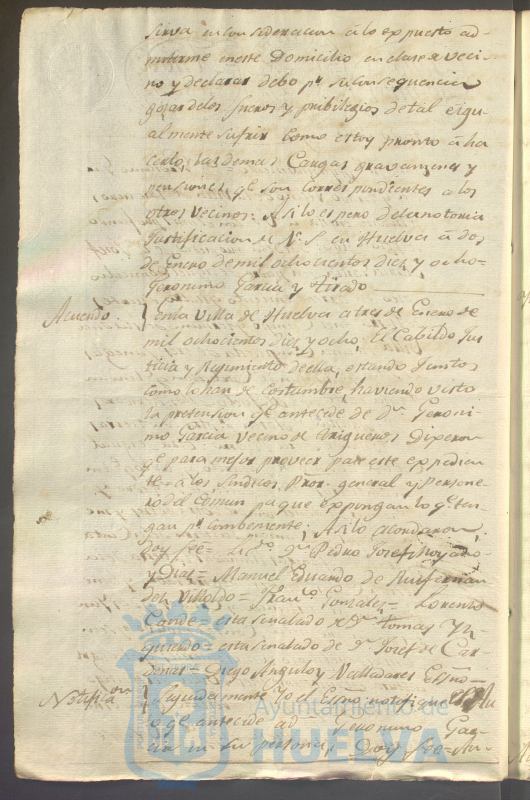 sirva en consideracion á lo expuesto ad-
mitirme en este Domicilio en clase de veci-
no y declarar debo pr. su consequencia
gozar de los fueros y pribilegios de tal e igu-
almente sufrir como estoy pronto á ha
cerlo, las demas Cargas gravamenes y
pensiones qe. son correspondientes a los
otros vecinos: Asi lo espero de la notoria
Justificacion de V. S. en Huelva á dos
de Enero de mil ochocientos diez y ocho-
Geronimo Garcia y Tirado
Acuerdo. En la Villa de Huelva a tres de Enero de
mil ochocientos diez y ocho, El Cabildo Jus
ticia y Regimiento de ella, estando Juntos
como lo han de costumbre, haviendo visto
la pretension qe. antecede de dn. Geroni-
mo Garcia vecino de Dixeron
qe para mejor proveer pase este expedien
te a los Sindicos Pror. general y Persone
ro del Comun pa que expongan lo qe. ten-
gan pr. combeniente; Asi lo acordaron
doy fee = Licdo. Dn. Pedro Josef
y Diaz = Manuel Eduardo de
des Villoldo = Franco. Gonzalez = Lorenzo
Conde = esta señalado de Dn. Tomas Yz-
quierdo = esta señalado de Dn. Josef de Car-
denas = Diego Angulo y Valladares Essno =
Notifican. Seguidamente Yo el Essno. notifique el
qe antecede a dn. Geronimo Gar-
cia en su persona, Doy fee =
Ayuntamiento de
HUELVA